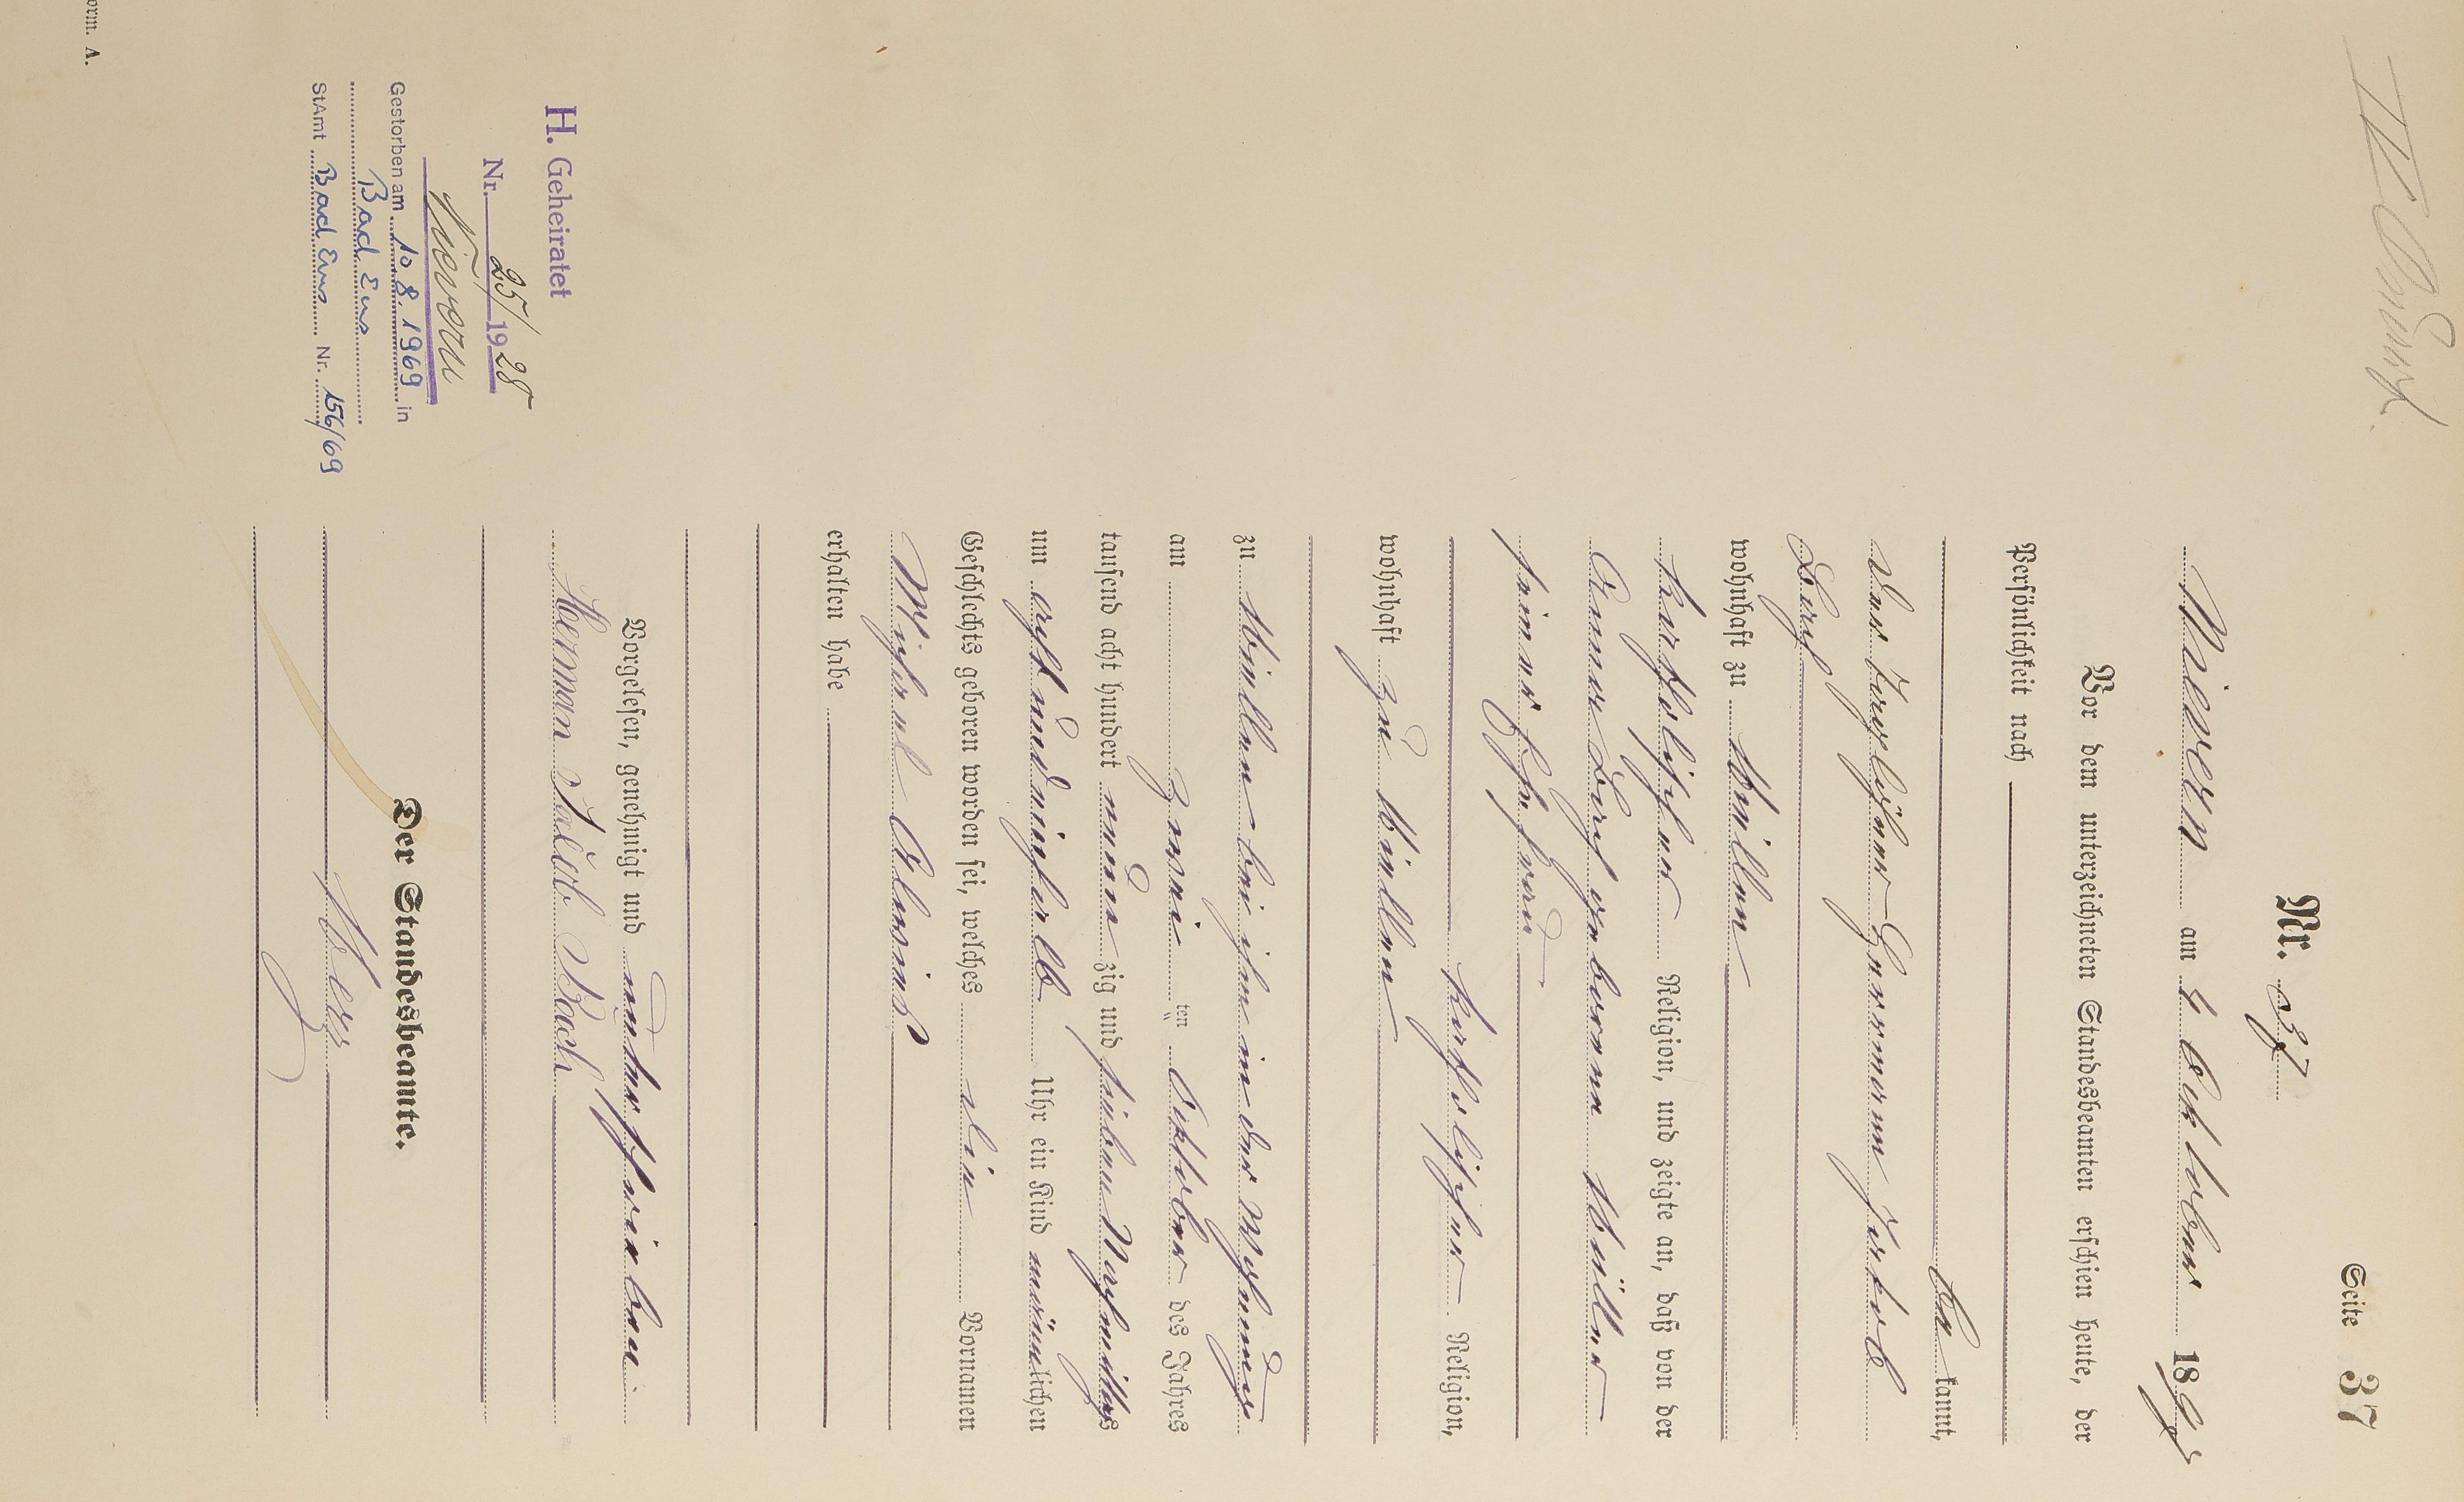 Seite 37
Nr. 37
Nievern am 4 Oktober 1897
Vor dem unterzeichneten Standesbeamten erschien heute, der
Persönlichkeit nach
be kannt,
der Tagelöhner Hermann Jakob
Bach
wohnhaft zu
katholischer Religion, und zeigte an, daß von der
Anna Bach geborene Müller
seiner Ehefrau
katholischer Religion,
wohnhaft zu
zu bei ihm in der Wohnung
am zwei ten Oktober des Jahres
tausend acht hundert neun zig und sieben Nachmittags
um acht und einhalb Uhr ein Kind männlichen
Geschlechts geboren worden sei, welches die Vornamen
Michael Alois
erhalten habe
Vorgelesen, genehmigt und unterschrieben
Herman Jakob Bach
Der Standesbeamte.
H. Geheiratet
Nr. 25/1928
Nievern
Gestorben am 10.8.1969 in
Bad Ems
StAmt Bad Ems Nr. 156/69
orm. A.